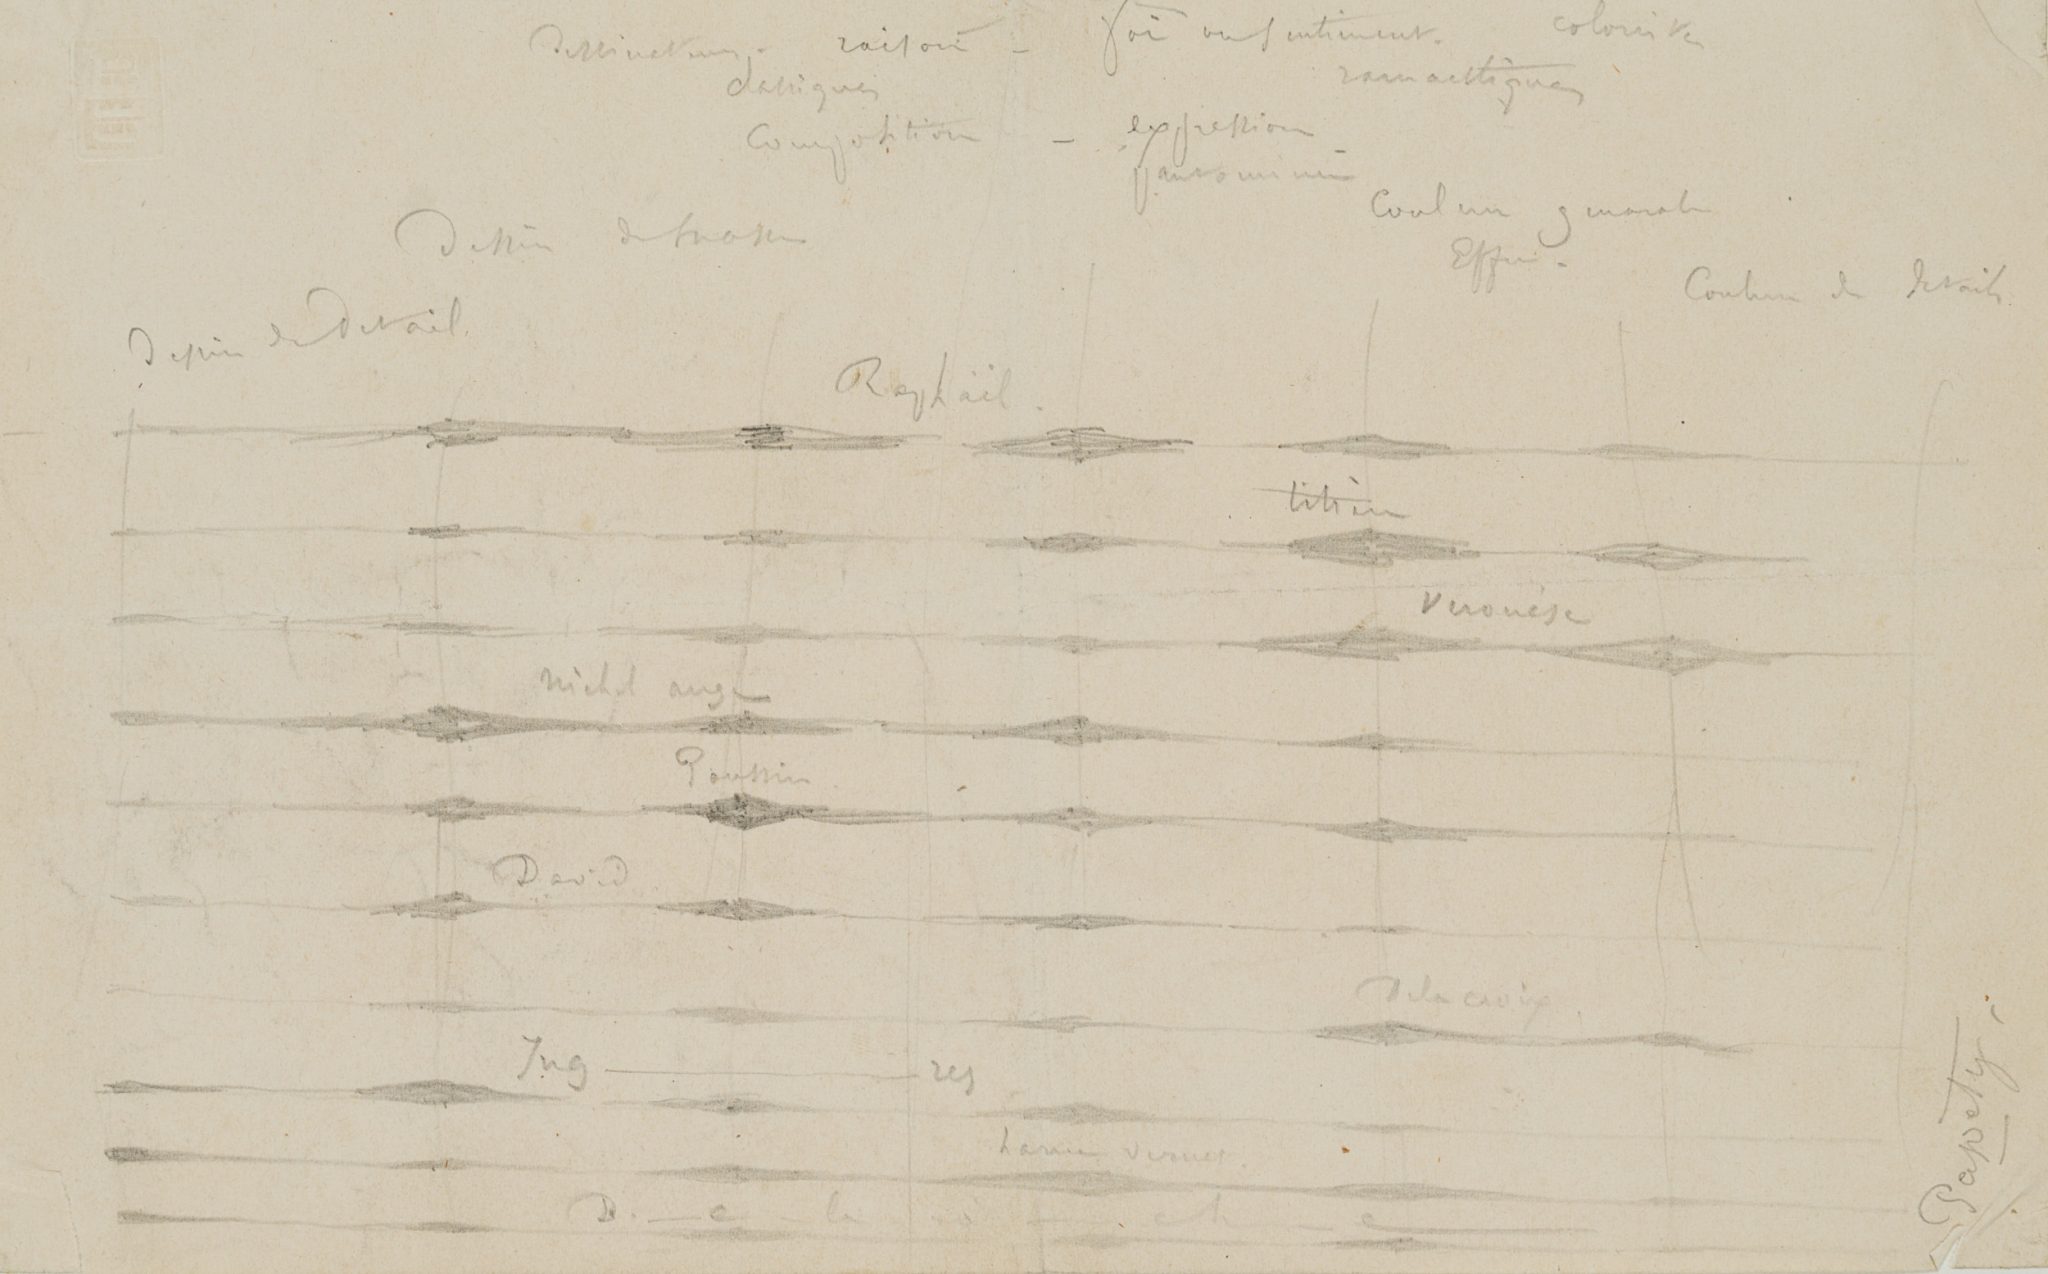 Dessinateurs - raison - foi ou sentiment. coloristes
classiques romantiques
Composition - expression
pantomime
Dessin de masse
Couleur generale
Effet -
Couleur de details
Dessin de Detail
Raphaël.
titien
Veronèse
Michel ange
Poussin
David
Delacroix
Ing res
horace vernet.
D e la ro ch e
Papety